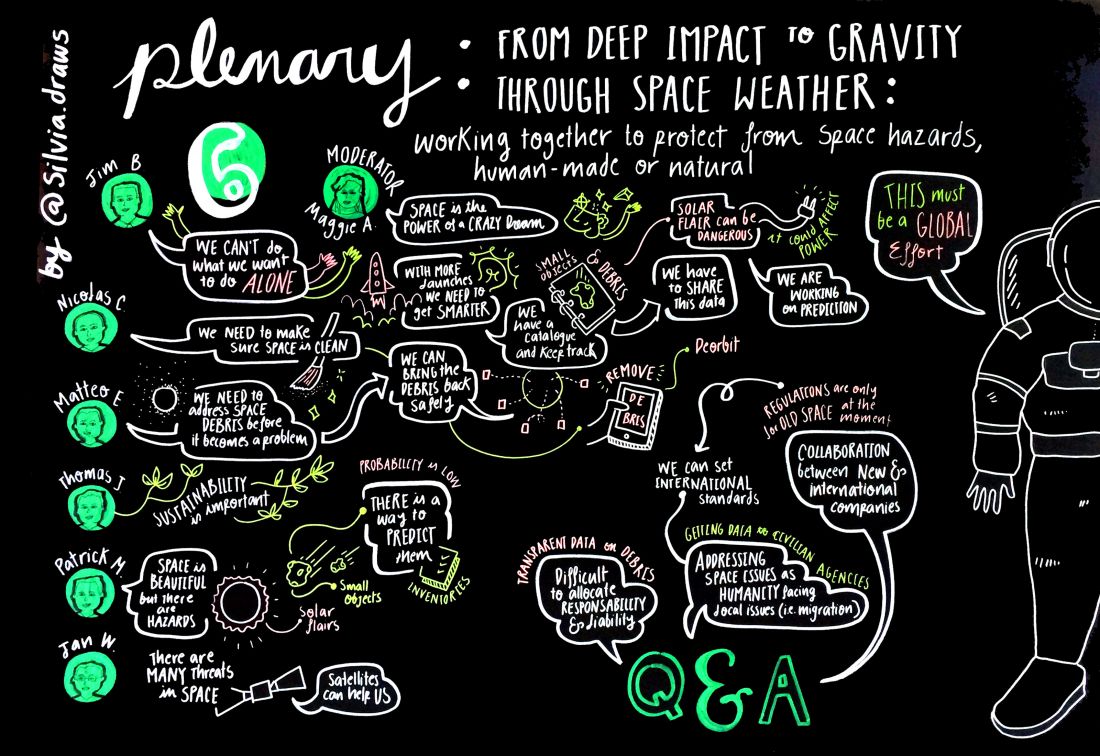 by @Silvia.draws
plenary
6
:
FROM DEEP IMPACT TO GRAVITY
THROUGH SPACE WEATHER:
working together to protect from space hazards,
human-made or natural
Jim B
WE CAN'T do
what we want
to do ALONE
MODERATOR
Maggie A.
SPACE is the
POWER of a CRAZY Dream
Nicolas C.
WE NEED to make
sure SPACE is CLEAN
WITH MORE
launches
WE NEED to
get SMARTER
SMALL
OBJECTS
& DEBRIS
WE
have a
catalogue
and keep track
WE have
to SHARE
this data
SOLAR
FLAIR can be
DANGEROUS
it could AFFECT
POWER
WE ARE
WORKING
on PREDICTION
THIS must
be a GLOBAL
Effort
Matteo E
WE NEED to
address SPACE
DEBRIS before
it becomes a problem
WE CAN
BRING the
DEBRIS back
safely
REMOVE
DE
BRIS
Deorbit
Thomas J
SUSTAINABILITY
is important
PROBABILITY is LOW
THERE is a
way to
PREDICT
them
INVENTORIES
Small
objects
Patrick M.
SPACE is
BEAUTIFUL
but there
are
HAZARDS
Solar
flairs
Jan W.
There are
MANY threats
in SPACE
Satellites
can help US
WE can set
INTERNATIONAL
standards
REGULATIONS are only
for OLD SPACE at the
moment
COLLABORATION
between New &
international
companies
TRANSPARENT DATA on DEBRIS
Difficult
to allocate
RESPONSABILITY
& liability
GETTING DATA to CIVILIAN
AGENCIES
ADDRESSING
SPACE ISSUES as
HUMANITY facing
local issues (i.e. migration)
Q&A